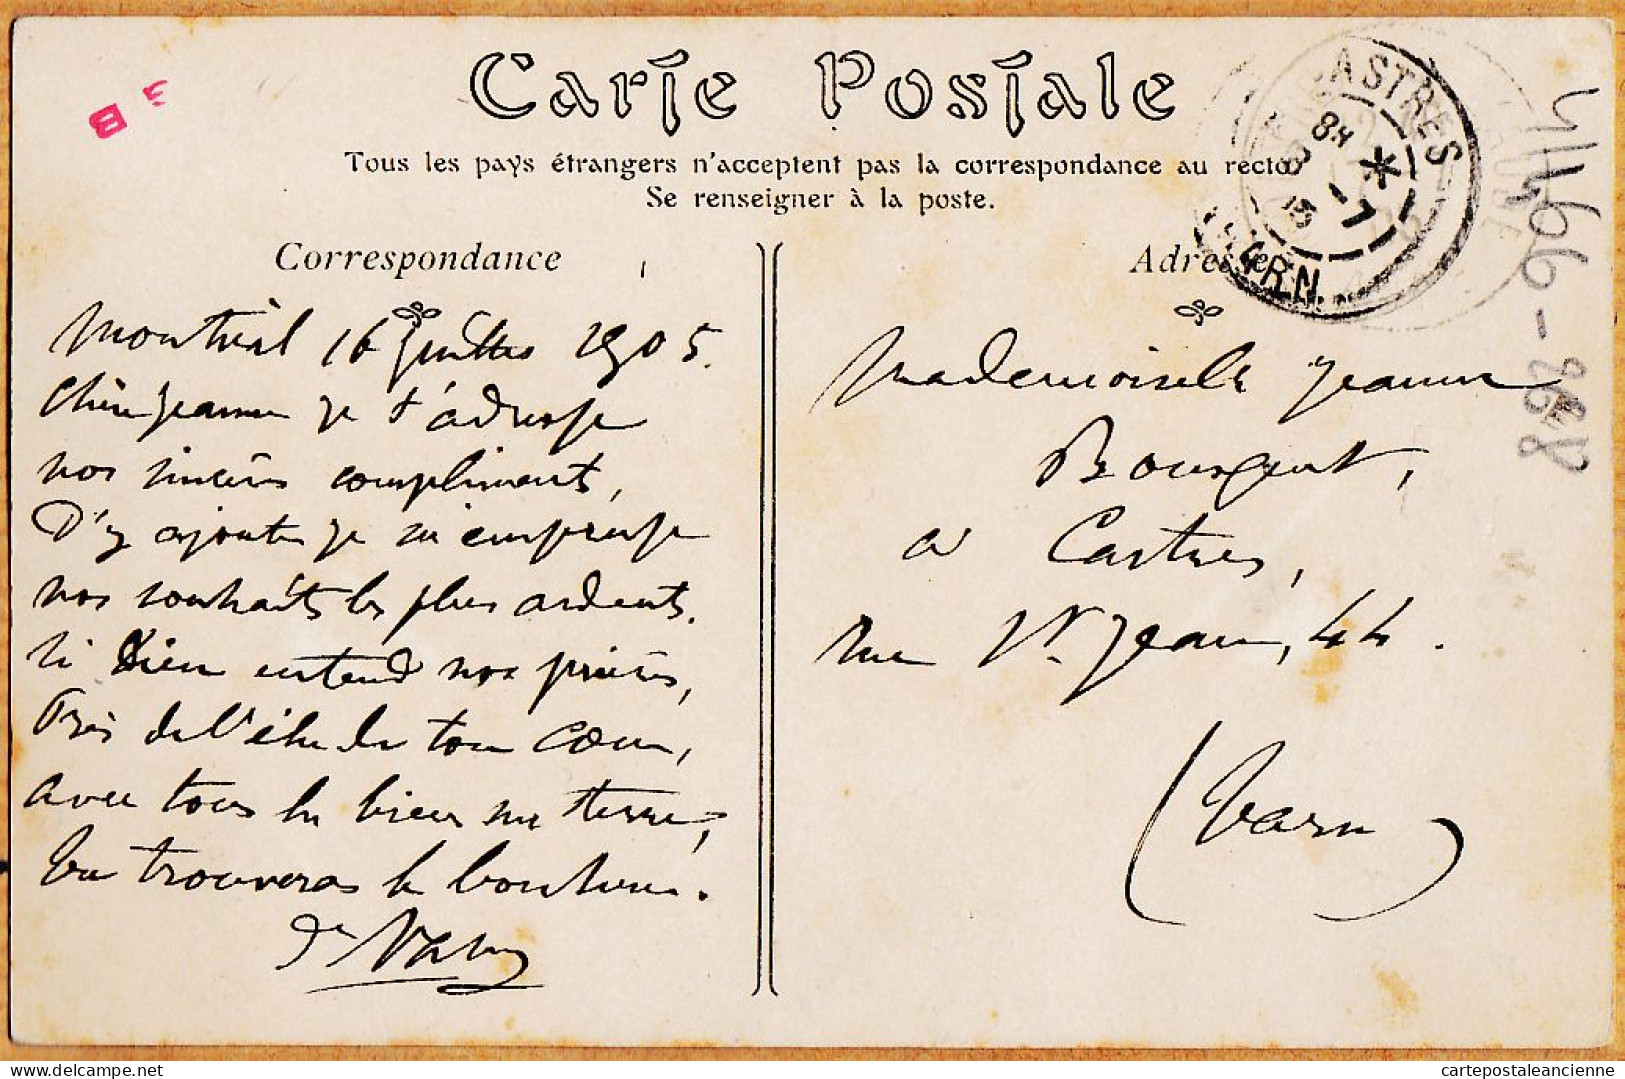 Carte Postale
Tous les pays étrangers n'acceptent pas la correspondance au recto
Se renseigner à la poste.
Correspondance
Montréal 16 Juillet 1905.
Chère Jeanne je t'adresse
nos sincères compliments,
D'y ajouter je m'empresse
nos souhaits les plus ardents.
Si Dieu entend nos prières,
Près de l'élu de ton cœur,
avec tous les biens sur terre,
Tu trouveras le bonheur.
Adresse
Mademoiselle Jeanne
Bourgeat,
à Castres,
rue St. Jean, 44.
(Tarn)
CASTRES
TARN
8H
*
-7
B
3
41166-268
cartepostaleancienne.com